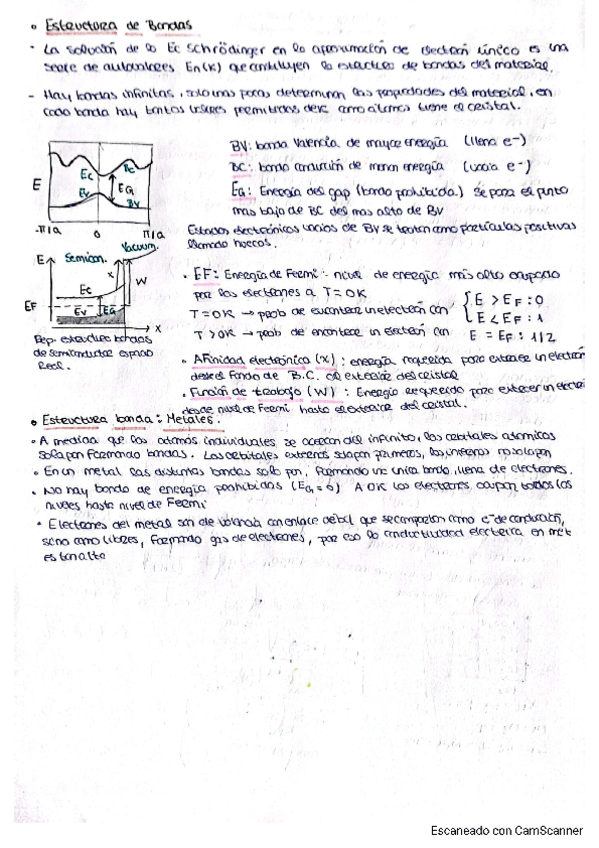 • Estructura de Bandas
- La solución de la Ec Schrödinger en la aproximación de electrón único es una
serie de autovalores En(k) que constituyen la estructura de bandas del material.
- Hay bandas infinitas, solo unas pocas determinan las propiedades del material, en
cada banda hay tantos estados permitidos de k como átomos tiene el cristal.
BV: banda Valencia de mayor energía (llena e-)
BC: banda conducción de menor energía (vacía e-)
EG: Energía del gap (banda prohibida). Separa el punto
mas bajo de BC del mas alto de BV
Estados electrónicos vacios de BV se tratan como partículas positivas
llamada huecos.
E
Ec
Ev
EG
BC
BV
-π/a 0 π/a
Vacuum.
E Semicon.
X
W
Ec
EF
Ev
EG
x
Rep. estructura bandas
de semiconductor espacio
Real.
• EF: Energía de Fermi: nivel de energía más alto ocupado
por los electrones a T=0K
T=0K → prob de encontrar un electrón con { E > EF : 0
E < EF : 1
T>0K → prob de encontrar un electrón con E = EF : 1/2
• Afinidad electrónica (X): energía requerida para extraer un electrón
desde el fondo de B.C. al exterior del cristal
• Función de trabajo (W): Energía requerida para extraer un electrón
desde nivel de Fermi hasta el exterior del cristal.
• Estructura banda: Metales.
• A medida que los átomos individuales se acercan del infinito, los orbitales atómicos
solapan formando bandas. Los orbitales externos solapan primeros, los internos no solapan
• En un metal las distintas bandas solapan, formando una única banda, llena de electrones.
• No hay banda de energía prohibidas (EG=0) A 0K los electrones ocupan todos los
niveles hasta nivel de Fermi
• Electrones del metal son de valencia con enlace débil que se comportan como e- de conducción,
sino como libres, formando gas de electrones, por eso la conductividad eléctrica en met
es tan alta
Escaneado con CamScanner